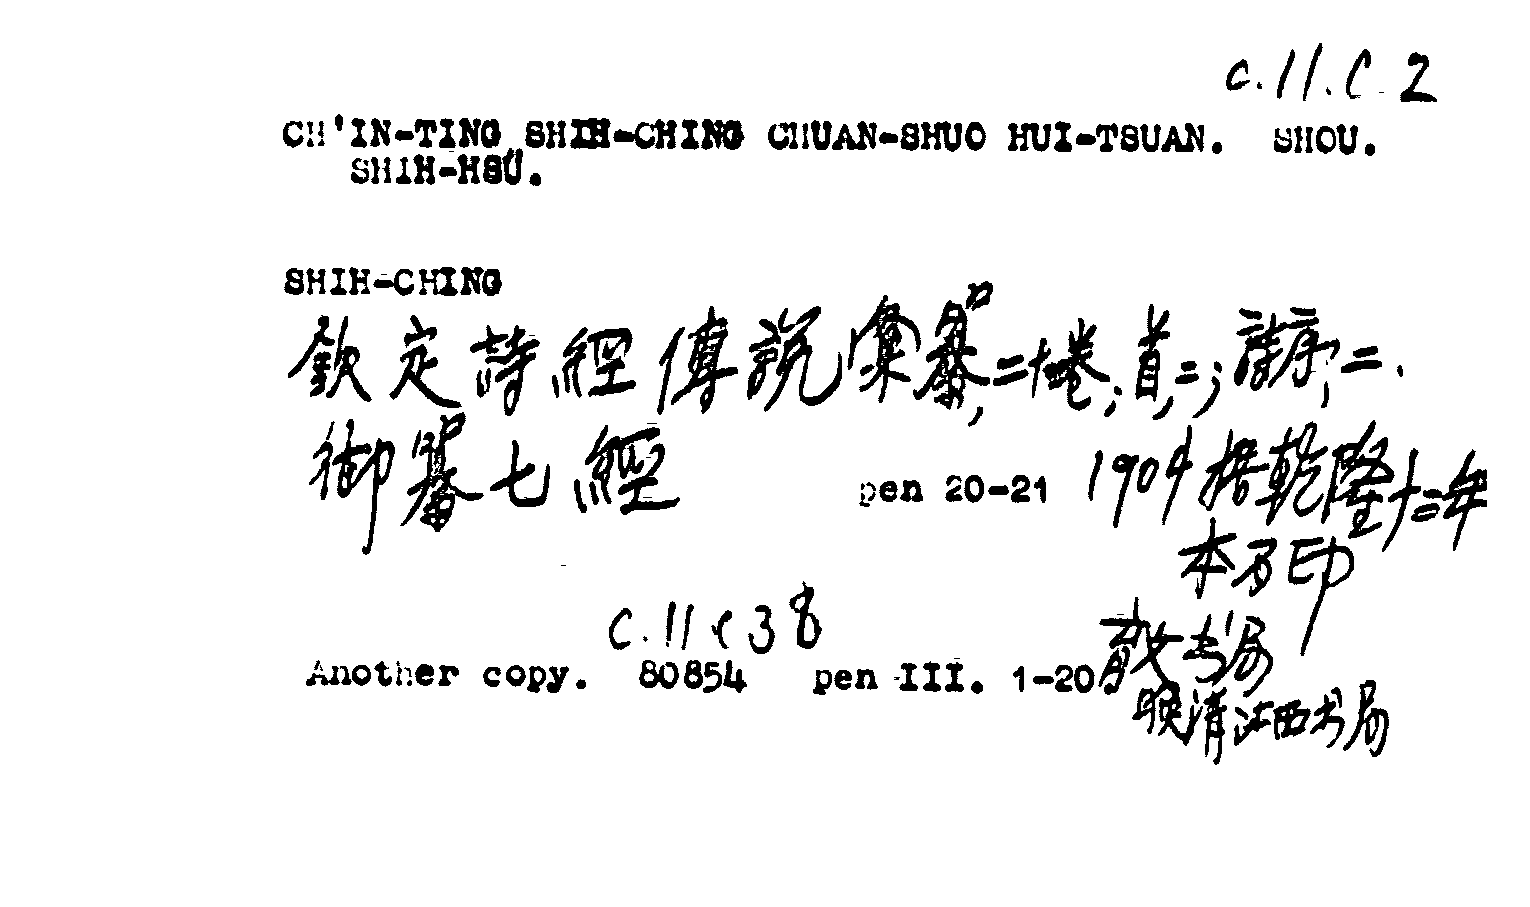 c.11.c.2
CH'IN-TING SHIH-CHING CHUAN-SHUO HUI-TSUAN. SHOU.
SHIH-HSÜ.
SHIH-CHING
欽定詩經傳說彙纂,二十卷;首,二;詩序,二.
御纂七經 pen 20-21 1904 据乾隆十二年
本石印
C.11 c 38
Another copy. 80854 pen III. 1-20
书局
晚清江西书局